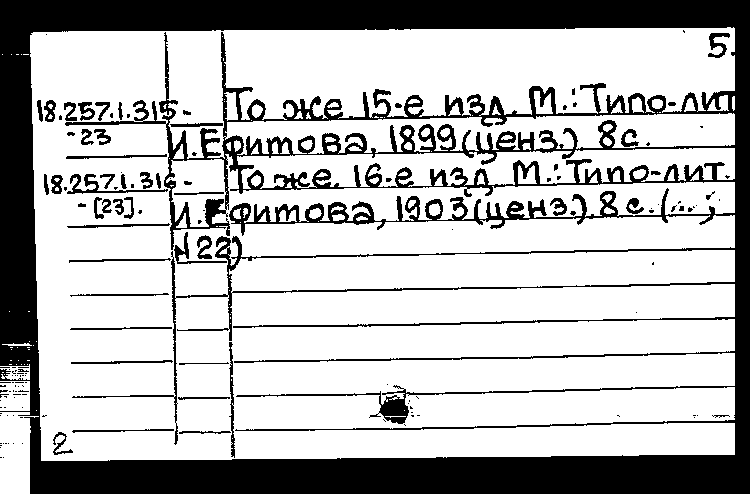 5.
18.257.1.315- То же. 15-е изд. М.: Типо-лит
-23 И.Ефитова, 1899 (ценз.). 8 с.
18.257.1.316- То же. 16-е изд. М.: Типо-лит.
-[23]. И.Ефитова, 1903 (ценз.). 8 с. (...;
N 22).
2